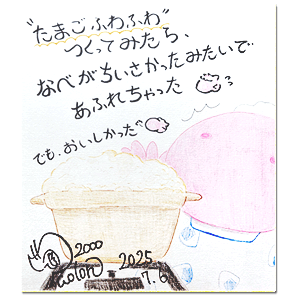 "たまごふわふわ"
つくってみたら、
なべがちいさかったみたいで
あふれちゃった
でも、おいしかった
2000
2025
7.6